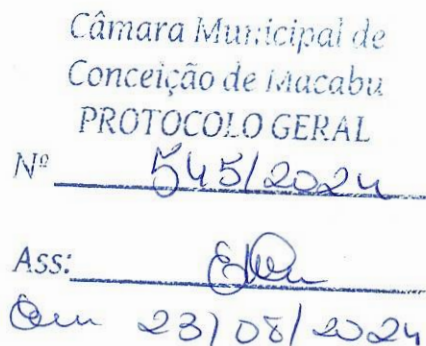 Câmara Municipal de
Conceição de Macabu
PROTOCOLO GERAL
Nº 545/2024
Ass:
Em 23/08/2024